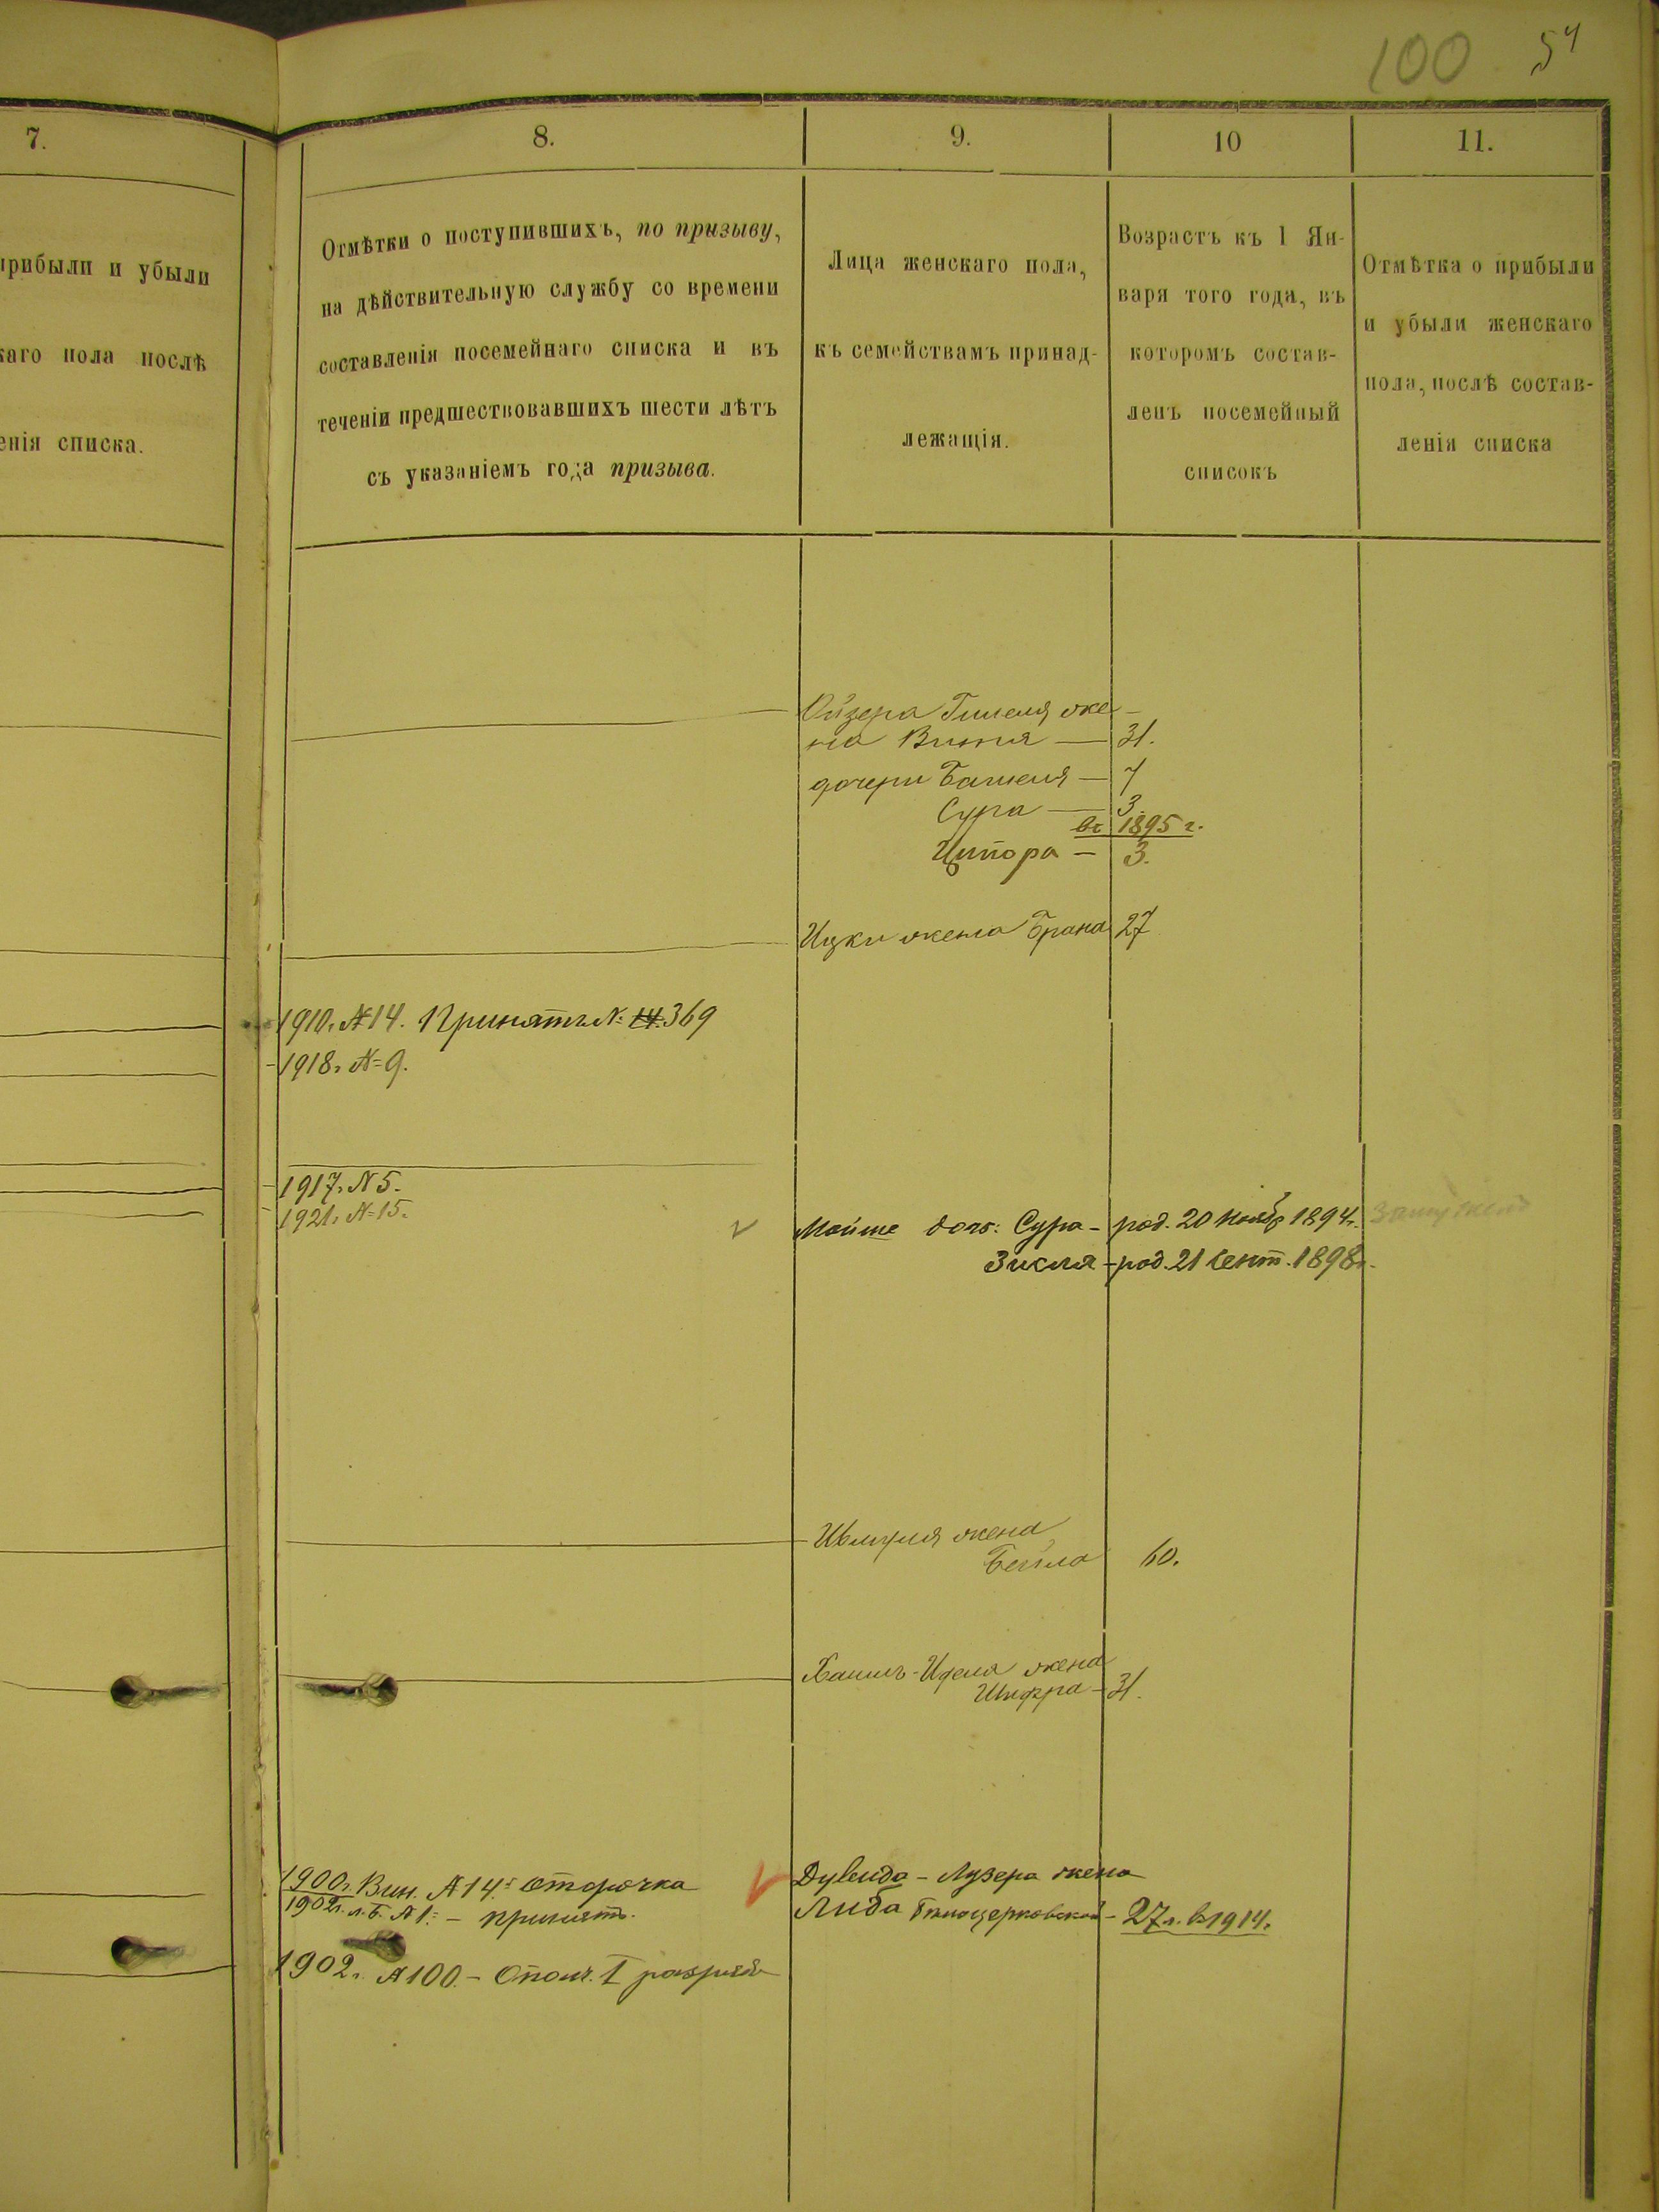 100 54
7.
8.
9.
10
11.
прибыли и убыли
каго пола послѣ
енія списка.
Отмѣтки о поступившихъ, по призыву,
на дѣйствительную службу со времени
составленія посемейнаго списка и въ
теченіи предшествовавшихъ шести лѣтъ
съ указаніемъ года призыва.
Лица женскаго пола,
къ семействамъ принад-
лежащія.
Возрастъ къ 1 Ян-
варя того года, въ
которомъ состав-
ленъ посемейный
списокъ
Отмѣтка о прибыли
и убыли женскаго
пола, послѣ состав-
ленія списка
Ойзера Гилеля же-
на Витя — 31.
дочери Башеля — 7
Сура — 3.
въ 1895 г.
Ципора — 3.
Ицки жена Брана 27
1910 г. № 14. Принятъ № 14. 369
1918 г. № 9.
1917 г. № 5.
1921 г. № 15.
Мойше доч: Сура - род. 20 Ноябр 1894 г. замужемъ
Зисля - род. 21 Сент. 1898 г.
жена
Бейла 60.
Хаимъ-Иделя жена
Шифра - 31.
1900 г. Вин. № 14: отсрочка
1902 г. л. Б. № 1: - принятъ.
1902 г. № 100. - Ополч. I разряда
Дувида - Лузера жена
Либа Белоцерковской - 27 л. в 1914 г.